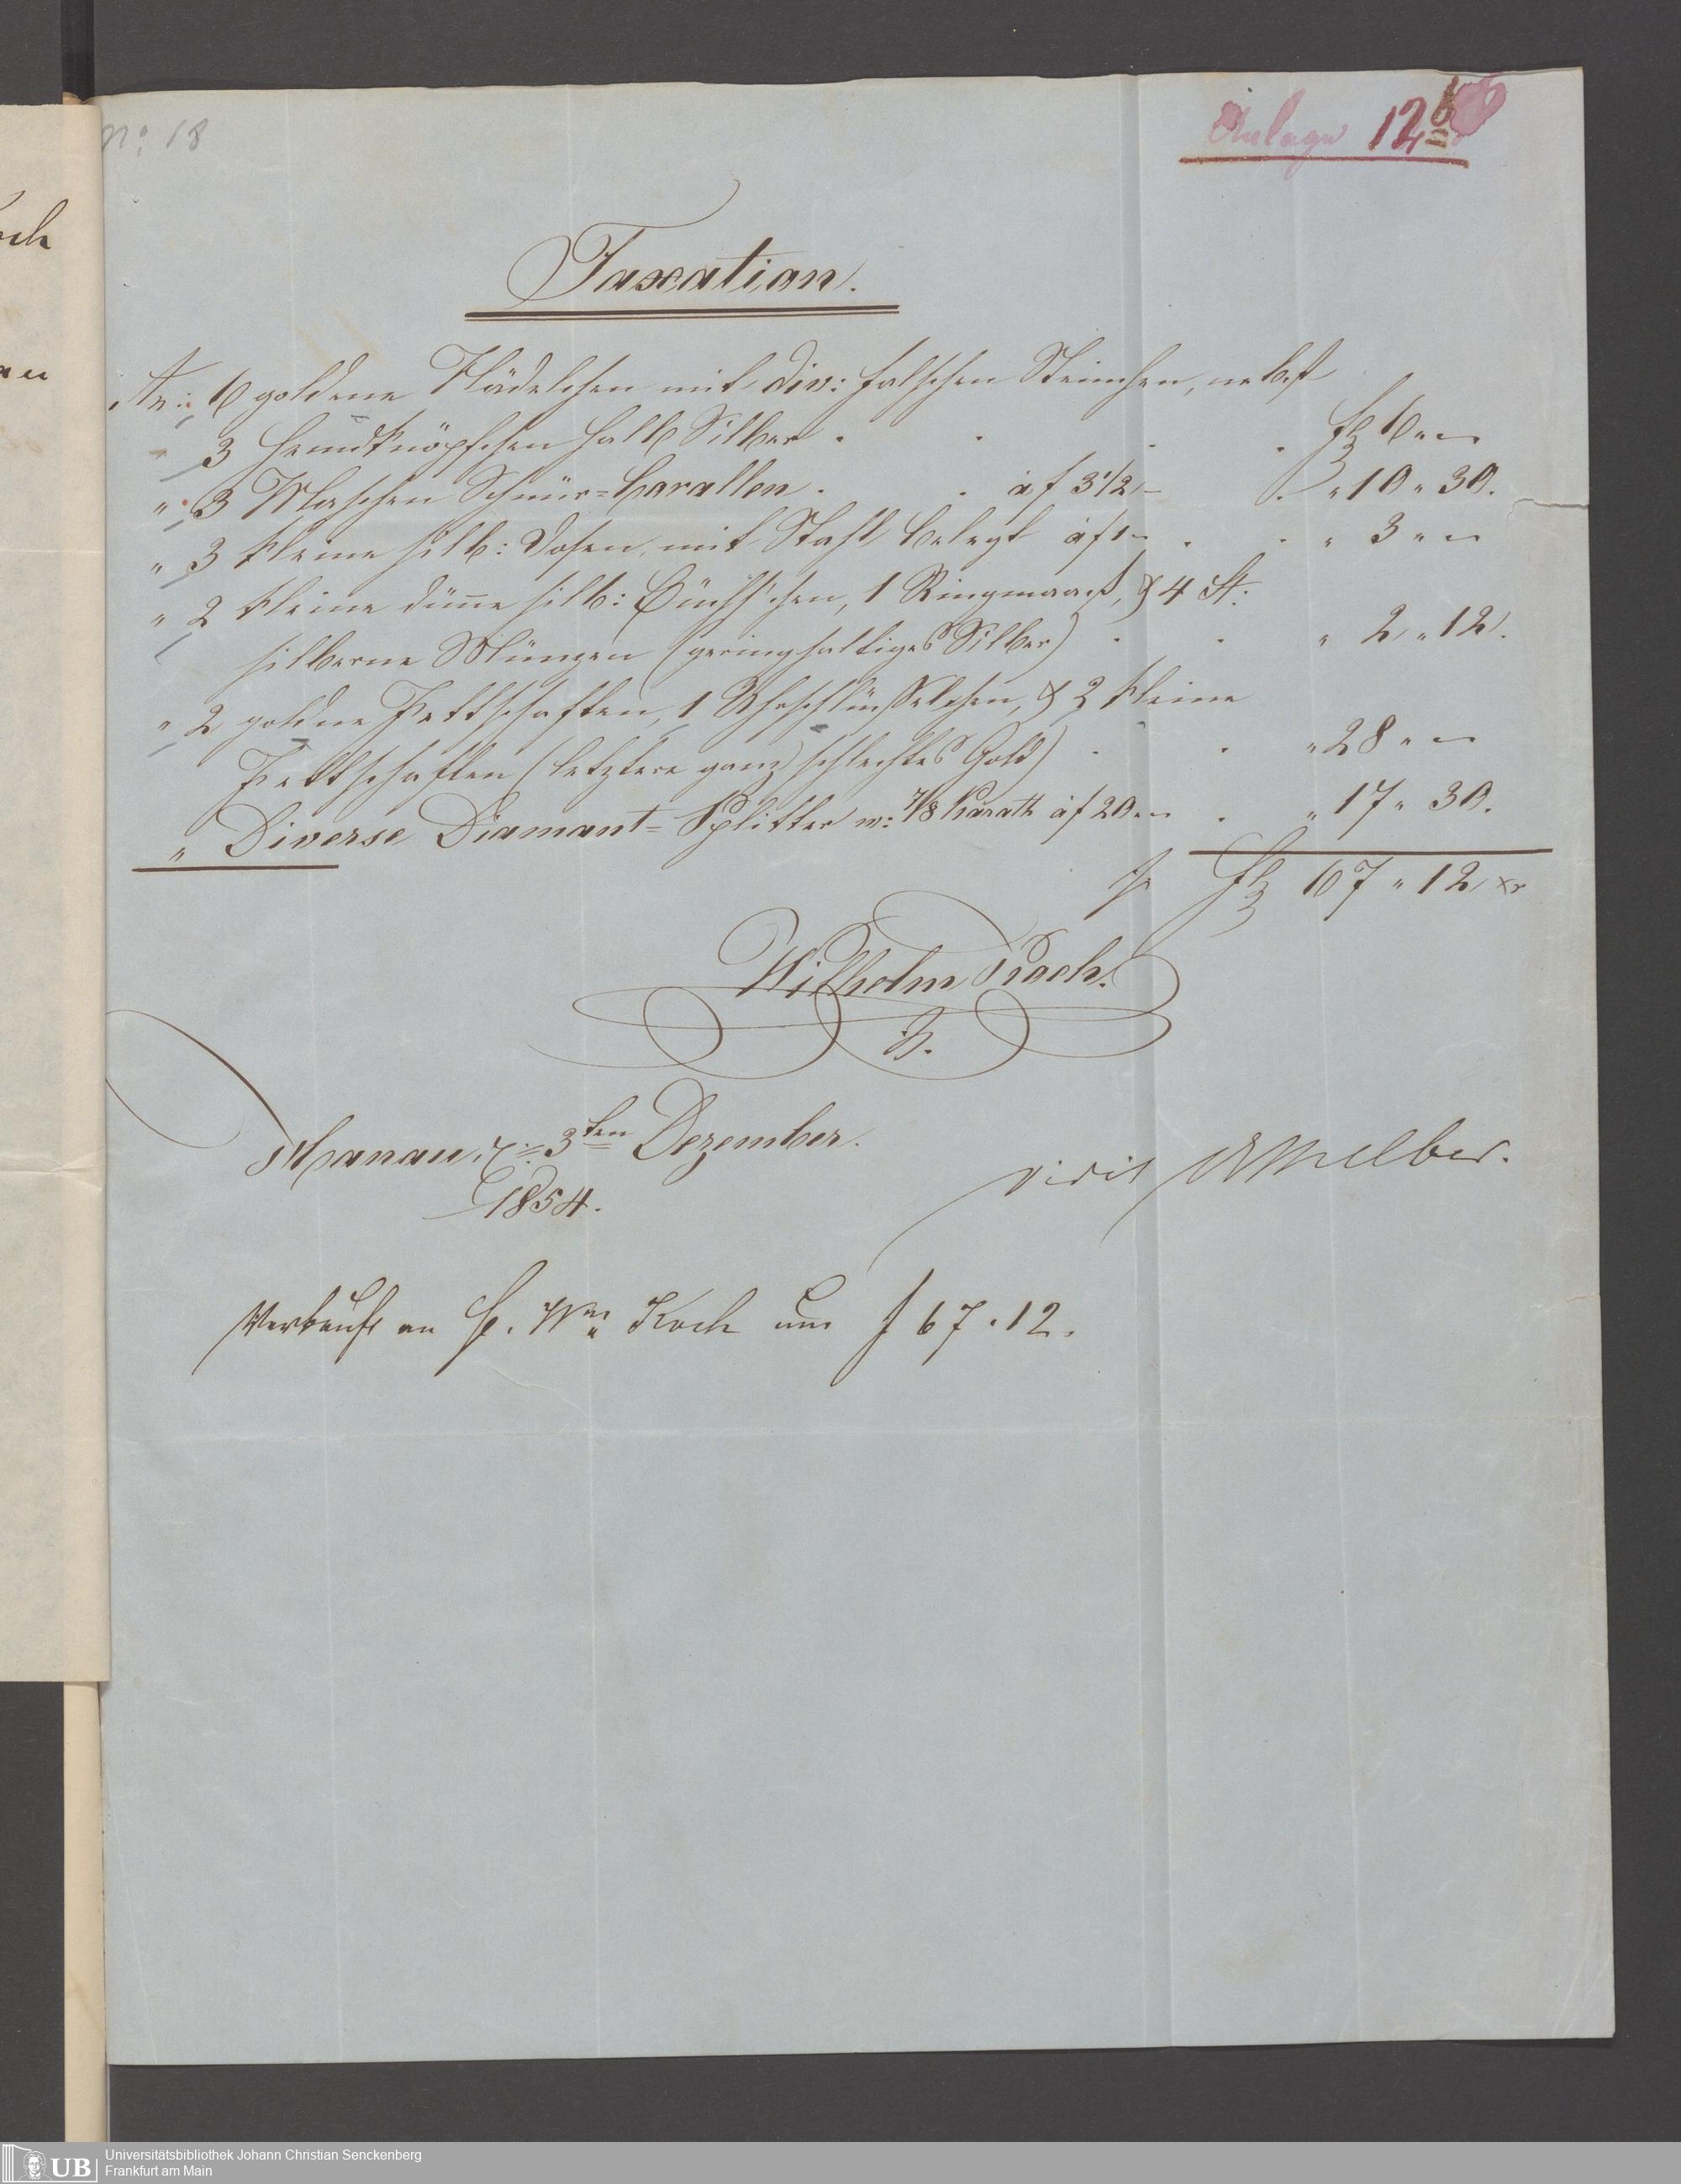 No: 18
Anlage 12b
Taxation.
An: 6 goldene Nädelchen mit div: falschen Steinchen, nebst
" 3 Hemdknöpfchen halb Silber . . . . fl 6 " –
" 3 Maschen Schnür=Corallen . . à f 3 1/2 – . " 10 " 30.
" 3 kleine silb: Dosen mit Stahl belegt à f 1 – . . " 3 " –
" 2 kleine dünne silb: Büchschen, 1 Ringmaaß, & 4 St:
silberne Münzen (geringhaltiges Silber) . . " 2 " 12.
" 2 goldne Pettschaften, 1 Uhrschlüsselchen, & 2 kleine
Pettschaften (letztere ganz schlechtes Gold) . . " 28 " –
" Diverse Diamant=Splitter w: 7/8 Karath à f 20 " – . " 17 " 30.
fl 67 " 12 xr
Wilhelm Koch.
Hanau, d. 3ten Dezember.
1854.
vidit Melber.
Verkauft an H. Wm Koch um f 67 . 12.
och
au
UB
Universitätsbibliothek Johann Christian Senckenberg
Frankfurt am Main